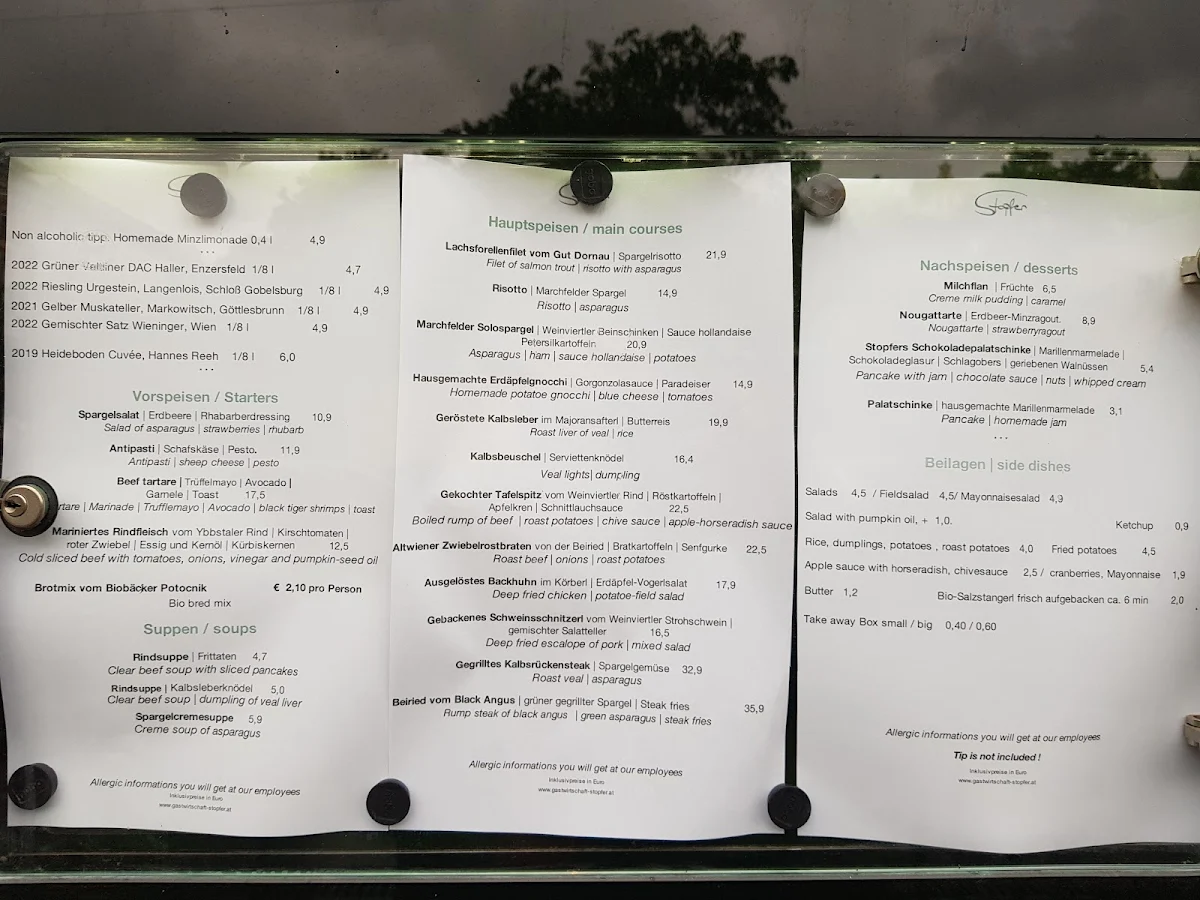 Non alcoholic tipp. Homemade Minzlimonade 0,4 l 4,9
...
2022 Grüner Veltliner DAC Haller, Enzersfeld 1/8 l 4,7
2022 Riesling Urgestein, Langenlois, Schloß Gobelsburg 1/8 l 4,9
2021 Gelber Muskateller, Markowitsch, Göttlesbrunn 1/8 l 4,9
2022 Gemischter Satz Wieninger, Wien 1/8 l 4,9
2019 Heideboden Cuvée, Hannes Reeh 1/8 l 6,0
...
Vorspeisen / Starters
Spargelsalat | Erdbeere | Rhabarberdressing 10,9
Salad of asparagus | strawberries | rhubarb
Antipasti | Schafskäse | Pesto. 11,9
Antipasti | sheep cheese | pesto
Beef tartare | Trüffelmayo | Avocado |
Garnele | Toast 17,5
rtare | Marinade | Trufflemayo | Avocado | black tiger shrimps | toast
Mariniertes Rindfleisch vom Ybbstaler Rind | Kirschtomaten |
roter Zwiebel | Essig und Kernöl | Kürbiskernen 12,5
Cold sliced beef with tomatoes, onions, vinegar and pumpkin-seed oil
Brotmix vom Biobäcker Potocnik € 2,10 pro Person
Bio bred mix
Suppen / soups
Rindsuppe | Frittaten 4,7
Clear beef soup with sliced pancakes
Rindsuppe | Kalbsleberknödel 5,0
Clear beef soup | dumpling of veal liver
Spargelcremesuppe 5,9
Creme soup of asparagus
Allergic informations you will get at our employees
Inklusivpreise in Euro
www.gastwirtschaft-stopfer.at
Hauptspeisen / main courses
Lachsforellenfilet vom Gut Dornau | Spargelrisotto 21,9
Filet of salmon trout | risotto with asparagus
Risotto | Marchfelder Spargel 14,9
Risotto | asparagus
Marchfelder Solospargel | Weinviertler Beinschinken | Sauce hollandaise
Petersilkartoffeln 20,9
Asparagus | ham | sauce hollandaise | potatoes
Hausgemachte Erdäpfelgnocchi | Gorgonzolasauce | Paradeiser 14,9
Homemade potatoe gnocchi | blue cheese | tomatoes
Geröstete Kalbsleber im Majoransafterl | Butterreis 19,9
Roast liver of veal | rice
Kalbsbeuschel | Serviettenknödel 16,4
Veal lights| dumpling
Gekochter Tafelspitz vom Weinviertler Rind | Röstkartoffeln |
Apfelkren | Schnittlauchsauce 22,5
Boiled rump of beef | roast potatoes | chive sauce | apple-horseradish sauce
Altwiener Zwiebelrostbraten von der Beiried | Bratkartoffeln | Senfgurke 22,5
Roast beef | onions | roast potatoes
Ausgelöstes Backhuhn im Körberl | Erdäpfel-Vogerlsalat 17,9
Deep fried chicken | potatoe-field salad
Gebackenes Schweinsschnitzerl vom Weinviertler Strohschwein |
gemischter Salatteller 16,5
Deep fried escalope of pork | mixed salad
Gegrilltes Kalbsrückensteak | Spargelgemüse 32,9
Roast veal | asparagus
Beiried vom Black Angus | grüner gegrillter Spargel | Steak fries 35,9
Rump steak of black angus | green asparagus | steak fries
Allergic informations you will get at our employees
Inklusivpreise in Euro
www.gastwirtschaft-stopfer.at
Stopfer
Nachspeisen / desserts
Milchflan | Früchte 6,5
Creme milk pudding | caramel
Nougattarte | Erdbeer-Minzragout. 8,9
Nougattarte | strawberryragout
Stopfers Schokoladepalatschinke | Marillenmarmelade |
Schokoladeglasur | Schlagobers | geriebenen Walnüssen 5,4
Pancake with jam | chocolate sauce | nuts | whipped cream
Palatschinke | hausgemachte Marillenmarmelade 3,1
Pancake | homemade jam
...
Beilagen | side dishes
Salads 4,5 / Fieldsalad 4,5/ Mayonnaisesalad 4,9
Salad with pumpkin oil, + 1,0. Ketchup 0,9
Rice, dumplings, potatoes , roast potatoes 4,0 Fried potatoes 4,5
Apple sauce with horseradish, chivesauce 2,5 / cranberries, Mayonnaise 1,9
Butter 1,2 Bio-Salzstangerl frisch aufgebacken ca. 6 min 2,0
Take away Box small / big 0,40 / 0,60
Allergic informations you will get at our employees
Tip is not included !
Inklusivpreise in Euro
www.gastwirtschaft-stopfer.at